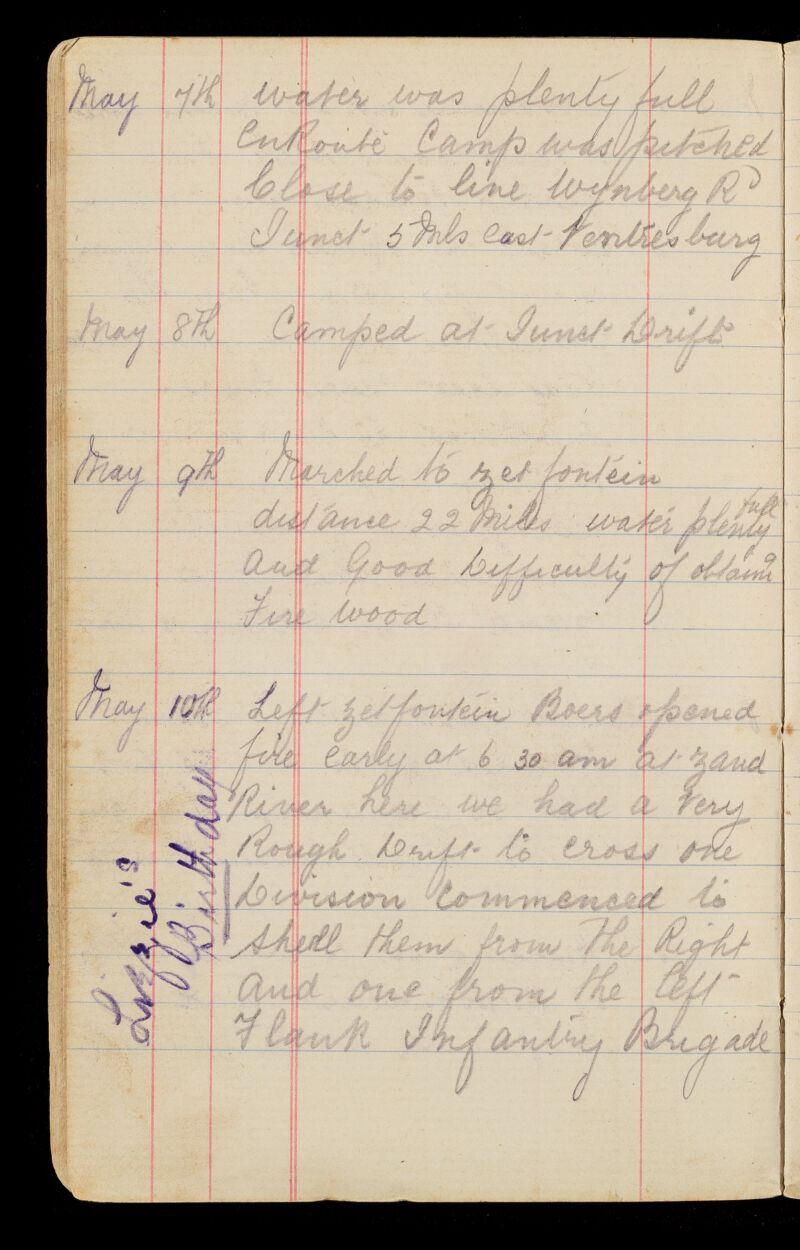 May 7th water was plenty full
EnRoute Camp was pitched
Close to line Wynberg Rd
Junct 5 Mls East Ventresburg
May 8th Camped at Junct Drift
May 9th Marched to zet fontein
distance 22 Miles water plenty full
And Good Difficulty of obtaing
Fire wood
May 10th Left zetfontein Boers opened
fire Early at 6 30 am at zand
River here we had a Very
Rough Drift to cross one
Division Commenced to
Shell them from The Right
And one from The left
Flank Infantry Brigade
Lizzie's
Birthday